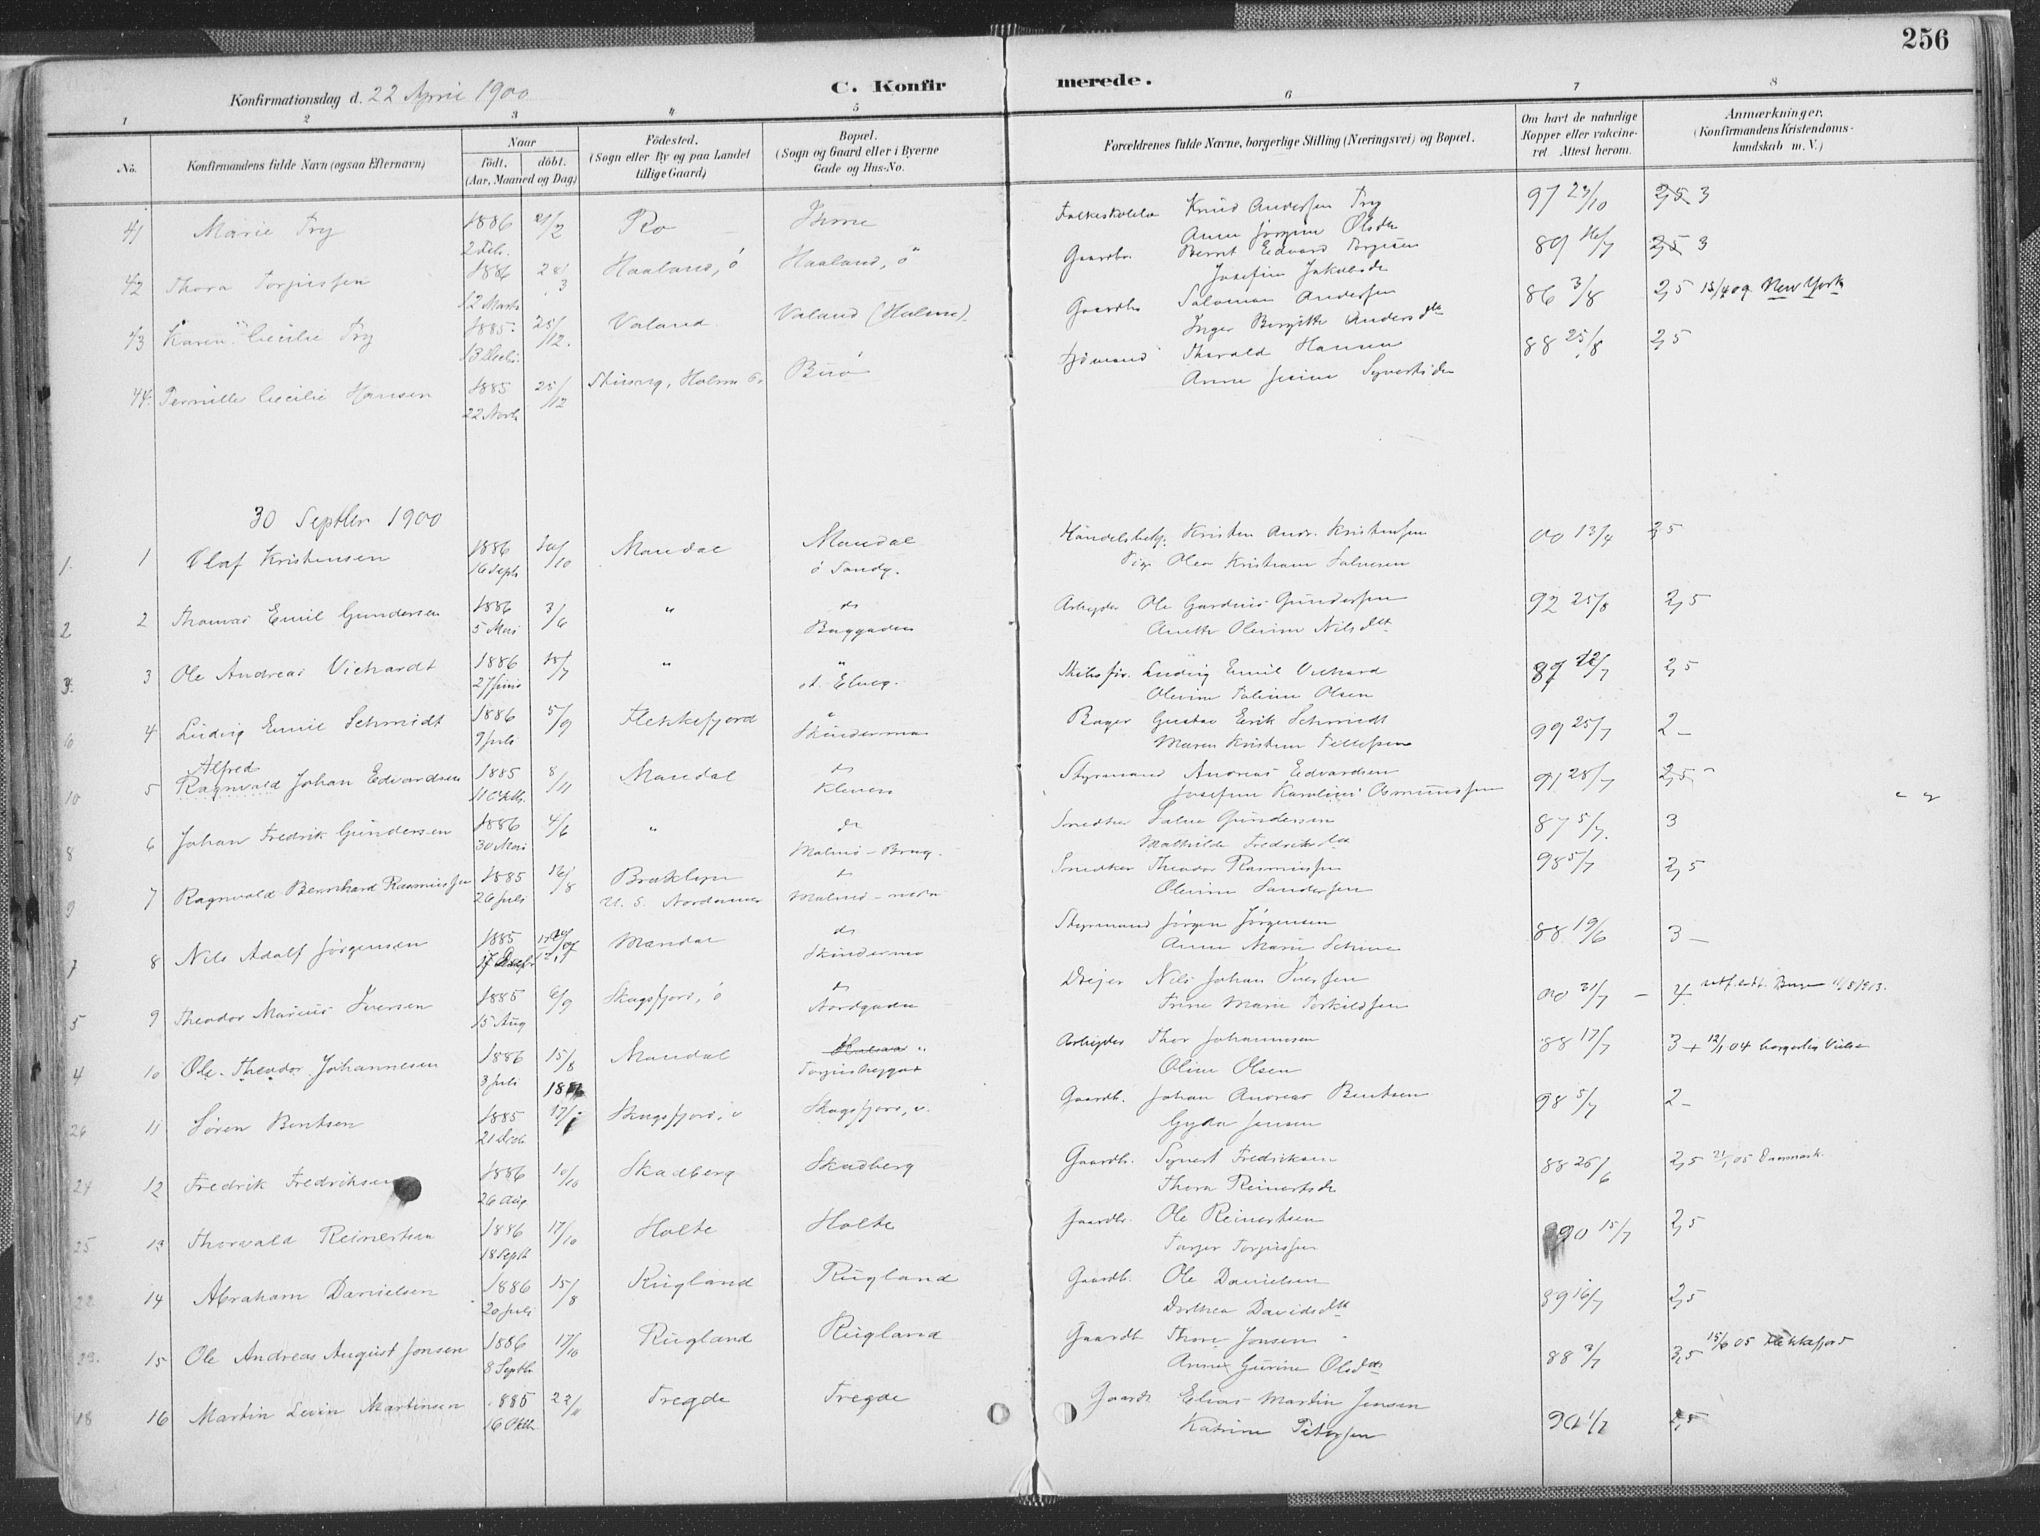 256
Konfirmationsdag d. 22 April 1900
C. Konfirmerede.
1 2 3 4 5 6 7 8
No.
Konfirmandens fulde Navn (ogsaa Efternavn)
Naar
födt. döbt.
(Aar, Maaned og Dag)
Födested.
(Sogn eller By og paa Landet
tillige Gaard)
Bopæl.
(Sogn og Gaard eller i Byerne
Gade og Hus-No.
Forældrenes fulde Navne, borgerlige Stilling (Næringsvei) og Bopæl.
Om havt de naturlige
Kopper eller vakcine-
ret Attest herom.
Anmærkninger.
(Konfirmandens Kristendoms-
kundskab m. V.)
41 Marie Try 1886 2 Feb. 21/2 Ro Ime Knud Andersen Try 97 23/10 2,5 3
Anne Jörgine Olsdr
42 Thora Torgiussen 1886 12 Marts 28/3 Haaland, ö Haaland, ö Gaardbr. Bernt Edvard Torgisen 89 16/7 2,5 3
Josefine Jakobsdr
43 Karen Cecilie Try 1885 13 Decbr 25/12. Valand Valand (Halsen). Gaardbr Salomon Andersen 86 3/8 2,5 15/4 09 New York
Inger Birgitte Andersdtr
44. Pernille Cecilie Hansen 1885 22 Novb 25/12 Holum Buö Thorvald Hansen 88 25/8 2,5
Anne Syvertsdr
30 Septbr 1900
1. 1 Olaf Kristensen 1886 16 Septb 10/10 Mandal Mandal ö Sandg. Handelsbetj. Kristen Andr. Kristensen 00 13/4 2,5
Olea Kristiane Salvesen
2 2 Thomas Emil Gundersen 1886 5 Mai 3/6 " do Baggaden Arbeyder Ole Gardius Gundersen 92 25/8 2,5
Anette Olivine Nilsdtr
3. 3 Ole Andreas Vichardt 1886 27 Juni 18/7 " " Elveg. Skibsför. Ludvig Emil Vichard 87 12/7 2,5
Olivine Taline Olsen
6 4 Ludvig Emil Schmidt 1886 9 Juli 5/9 Flekkefjord " Skinderma Bager Gustav Erik Schmidt 99 25/7 2 –
Maren Kristine Tellefsen
Alfred
10 5 Ragnvald Johan Edvardsen 1885 11 Oktb. 8/11 Mandal do Kleven Styrmand Andreas Edvardsen 91 28/7 2,5 –
Josefine Karoline Osmundsen
8 6 Johan Fredrik Gundersen 1886 30 Mai 4/6 " do Malmö – Brug. Snedker Salve Gundersen 87 5/7. 3
Mathilde Fredriksdtr
9 7 Ragnvald Bernhard Rasmussen 1885 26 Juli 16/8 Brooklyn U. S. Nordamer do Malmö – Snedker Theodor Rasmussen 98 5/7 2,5
Olivine Sandersen
7 8 Nils Adolf Jörgensen 1885 Mandal do Skinderma Styrmand Jörgen Jörgensen 88 19/6 3 –
Anne Marie
5 9 Theodor Marius Iversen 1885 15 Aug 6/9 Skogsfjord, ö do Nordgaden Drejer Nils Johan Iversen 00 31/7 – 4 utf. att. Bergen 11/8 1913.
Trine Marie Torkildsen
4 10 Ole Theodor Johannesen 1886 3 Juli 15/8 Mandal Torjusheigat Arbeyder Thor Johannesen 88 17/7 3 + 12/1 04 borgerlig Vielse
Oline Olsen
26 11 Sören Bentsen 1885 21 Decb 1886 17/ Skogsfjord, ö Skogsfjord, ö. Gaardb. Johan Andreas Bentsen 98 5/7 2 –
Gyda Jensen
24 12 Fredrik Fredriksen 1886 26 Aug 10/10 Skadberg Skadberg Gaardb. Syvert Fredriksen 88 26/6 2,5 21/1 05 Danmark.
Thora Reinertsdr
25 13 Thorvald Reinertsen 1886 18 Septb 17/10 Holte Holte Gaardbr. Ole Reinertsen 90 15/7 2,5
Torgiussen
22 14 Abraham Danielsen 1886 20 Juli 15/8 Rugland Rugland Gaardb. Ole Danielsen 89 16/7 2,5
Dorthea Davidsdtr
23. 15 Ole Andreas August Jonsen 1886 8 Septbr 17/10 Rugland Rugland Gaardb Thore Jonsen 88 3/7 3,5 15/6 05 Flekkefjord
Anne Gurine Olsdtr
18 16 Martin Levin Martinsen 1885 16 Oktbr 22/11 Tregde Tregde Gaardb Elias Martin Jensen 90 1/7 2,5
Katrine Petersen